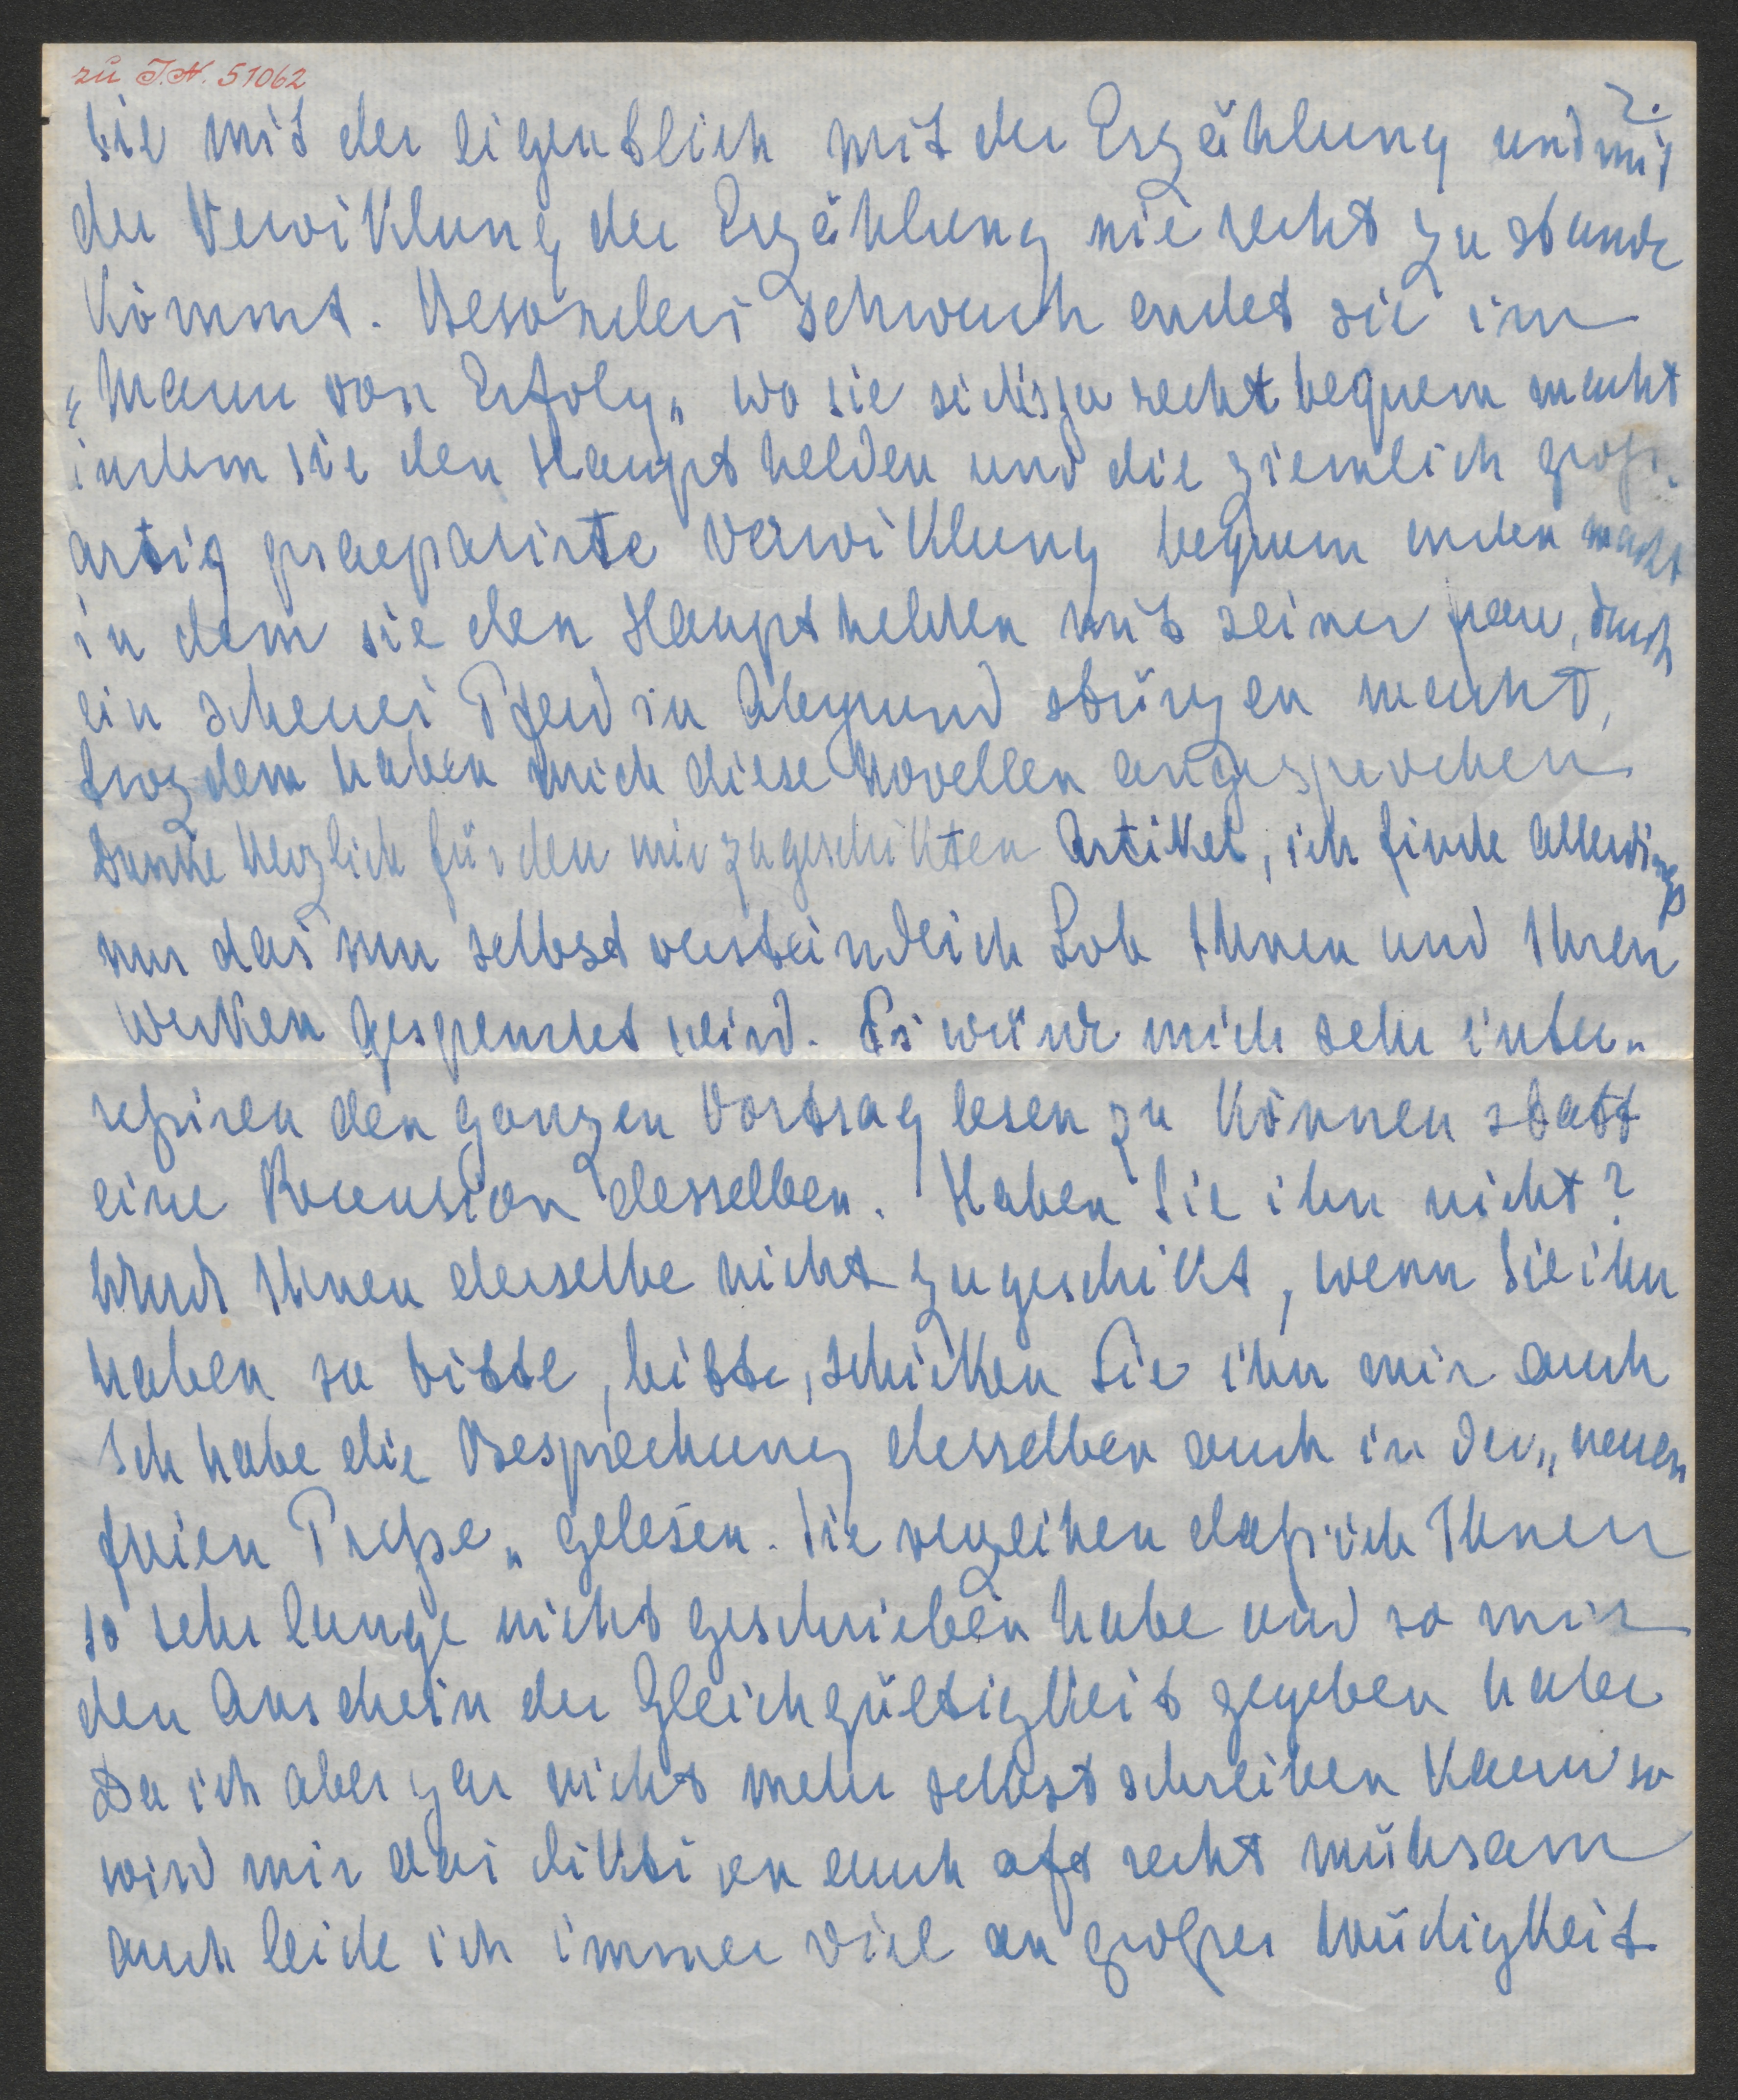 zu I.N. 51062
2.
sie mit der eigentlich mit der Erzählung und mit
der Verwiklung der Erzählung nie recht zu stande
kömmt. Besonders schwach endet sie im
„Mann von Erfolg„ wo sie sichs ja recht bequem macht
indem sie den Haupthelden und die ziemlich groß-
artig praeparirte Verwiklung bequem enden macht
in dem sie den Haupthelden mit seiner frau, durch
ein scheues Pferd in Abgrund stürzen macht,
trozdem haben mich diese Novellen angesprochen
Danke herzlich für den mir zugeschikten Artikel, ich finde allerdings
nur das nur selbstverständlich Lob Ihnen und Ihren
Werken gespendet wird. Es würde mich sehr inter„
reßiren den ganzen Vortrag lesen zu können statt
eine Recension desselben. Haben Sie ihn nicht?
Wurde Ihnen derselbe nicht zugeschikt, wenn Sie ihn
haben so bitte, bitte, schicken Sie ihn mir auch
Ich habe die Besprechung desselben auch in der „neuen
freien Preße„ gelesen. Sie verzeihen daß ich Ihnen
so sehr lange nicht geschrieben habe und so mir
den Anschein der Gleichgültigkeit gegeben habe
Da ich aber gar nicht mehr selbst schreiben kann so
wird mir das diktiren auch oft recht mühsam
auch leide ich immer viel an großer Müdigkeit